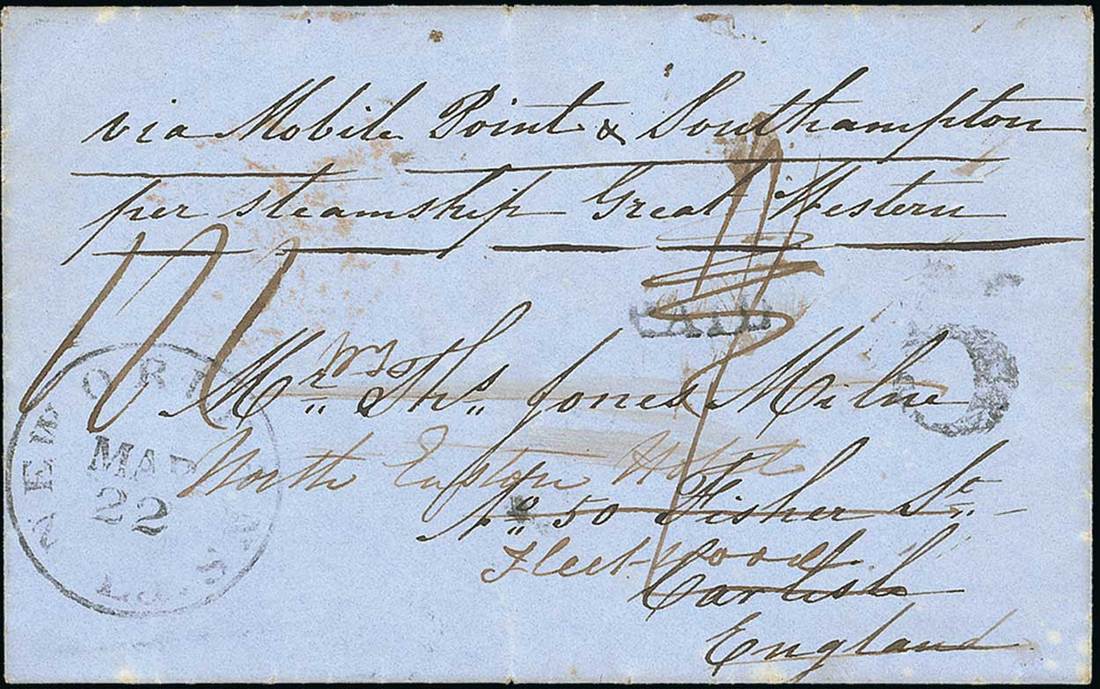 via Mobile Point & Southampton
per steamship Great Western
PAID
5
Mr. Ths. Jones Milne
North Euston Hotel
No. 50 Fisher St.
Fleetwood
Carlisle
England
NEW ORL LA.
MAR
22